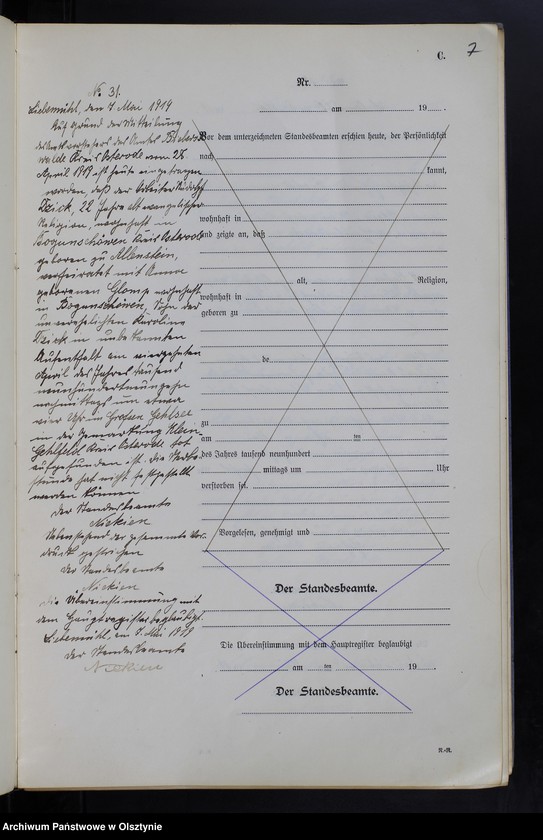 C.
7
No. 31.
Liebemühl, den 7. Mai 1919
Auf Grund der Mitteilung
des Amtsvorstehers des Amtes
walde Kreis Osterode vom 26.
April 1919 ist heute eingetragen
worden, daß der Arbeiter Rudolf
Dzick, 22 Jahre alt evangelischer
Religion, wohnhaft in
Bogunschöwen Kreis Osterode
geboren zu Allenstein,
verheiratet mit Anna
geborenen Glomp wohnhaft
in Bogunschöwen, Sohn der
unverehelichten Karoline
Dzick in unbekannten
Aufenthalt am vierzehnten
April des Jahres tausend
neunhundertneunzehn
nachmittags um etwa
vier Uhr im Großen Gehlsee
in der Gemarkung Klein
Gehlfeld Kreis Osterode tot
aufgefunden ist. die Sterbe-
stunde hat nicht festgestellt
werden können
der Standesbeamte
Nickien
Nebenstehend der gesammte Vor-
druck gestrichen
der Standesbeamte
Nickien
die Übereinstimmung mit
dem Hauptregister beglaubigt.
Liebemühl, am 7. Mai 1919
der Standesbeamte
Nickien
Nr.
am 19
Vor dem unterzeichneten Standesbeamten erschien heute, der Persönlichkeit
nach
kannt,
wohnhaft in
und zeigte an, daß
alt, Religion,
wohnhaft in
geboren zu
de
zu
am ten
des Jahres tausend neunhundert
mittags um Uhr
verstorben sei.
Vorgelesen, genehmigt und
Der Standesbeamte.
Die Übereinstimmung mit dem Hauptregister beglaubigt
am ten 19
Der Standesbeamte.
R.-R.
Archiwum Państwowe w Olsztynie